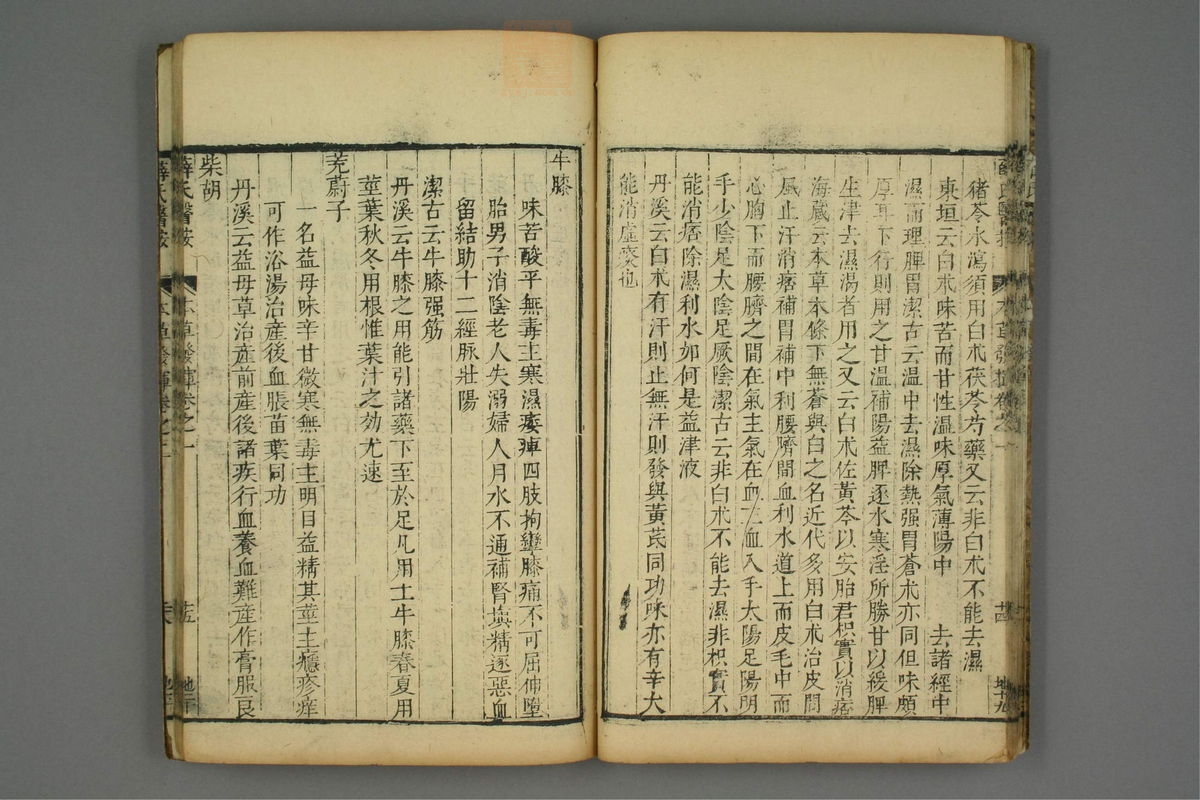 豬苓水瀉須用白朮茯苓芍藥又云非白朮不能去濕
東垣云白朮味苦而甘性溫味厚氣薄陽中 去諸經中
濕而理脾胃潔古云溫中去濕除熱强胃蒼朮亦同但味頗
厚耳下行則用之甘溫補陽益脾逐水寒淫所勝甘以緩脾
生津去濕渴者用之又云白朮佐黃芩以安胎君枳實以消痞
海藏云本草本條下無蒼與白之名近代多用白朮治皮間
風止汗消痞補胃補中利腰臍間血利水道上而皮毛中而
心胸下而腰臍之間在氣主氣在血主血入手太陽足陽明
手少陰足太陰足厥陰潔古云非白朮不能去濕非枳實不
能消痞除濕利水如何是益津液
丹溪云白朮有汗則止無汗則發與黃芪同功味亦有辛大
能消虛痰也
牛膝
味苦酸平無毒主寒濕痿痺四肢拘攣膝痛不可屈伸墮
胎男子消陰老人失溺婦人月水不通補腎塡精逐惡血
留結助十二經脉壯陽
潔古云牛膝强筋
丹溪云牛膝之用能引諸藥下至於足凡用土牛膝春夏用
莖葉秋冬用根惟葉汁之効尤速
茺蔚子
一名益母味辛甘微寒無毒主明目益精其莖主癮疹痒
可作浴湯治産後血脹苗葉同功
丹溪云益母草治産前産後諸疾行血養血難産作膏服良
柴胡
薛氏醫按 本草發揮卷之一